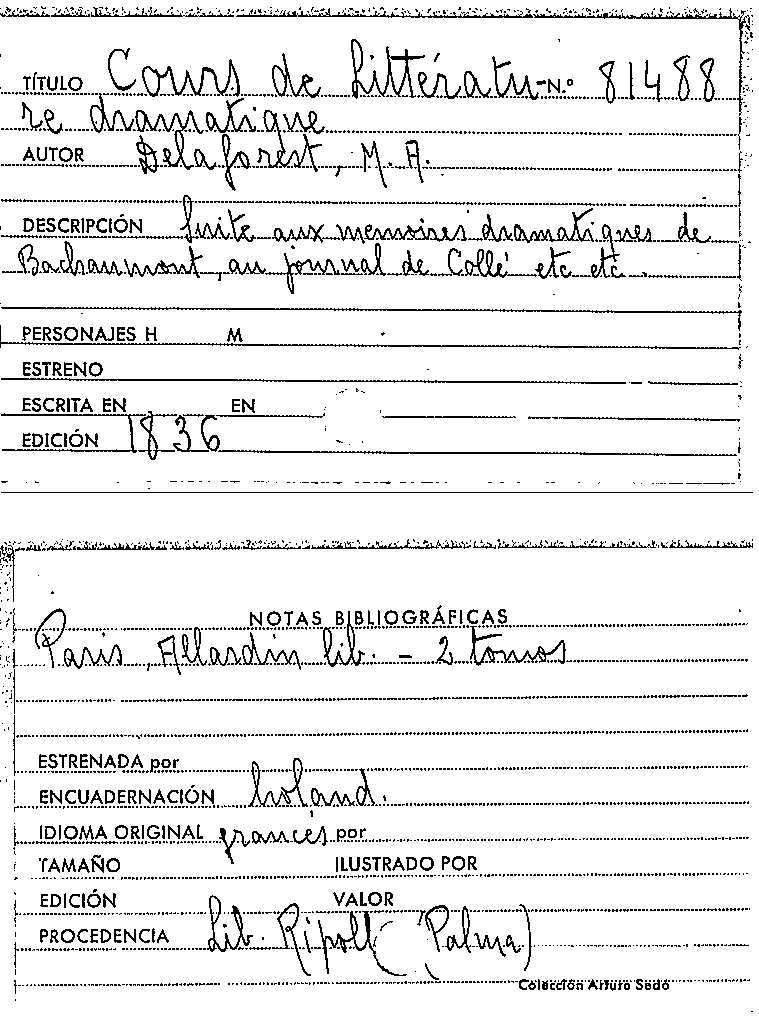 TÍTULO Cours de Littératu- N.º 81488
re dramatique
AUTOR Delaforest, M. A.
DESCRIPCIÓN Suite aux memoires dramatiques de
Bachaumont, au journal de Collé etc etc.
PERSONAJES H M
ESTRENO
ESCRITA EN EN
EDICIÓN 1836
NOTAS BIBLIOGRÁFICAS
Paris, Allardin lib. - 2 tomos
ESTRENADA por
ENCUADERNACIÓN holand.
IDIOMA ORIGINAL francés por
TAMAÑO ILUSTRADO POR
EDICIÓN VALOR
PROCEDENCIA Lib. Ripoll (Palma)
Colección Arturo Sedó